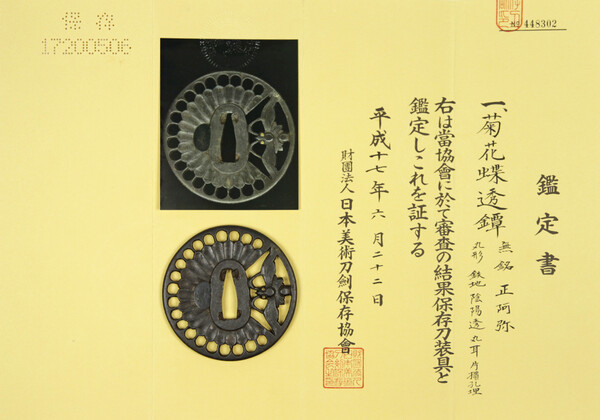 鑑定書
一、菊花蝶透鐔 無銘 正阿弥
丸形 鉄地 陰陽透 丸耳 片櫃孔埋
右は當協會に於て審査の結果保存刀装具と
鑑定しこれを証する
平成十七年六月二十二日
財團法人日本美術刀剣保存協會
№ 448302
保存
17200506